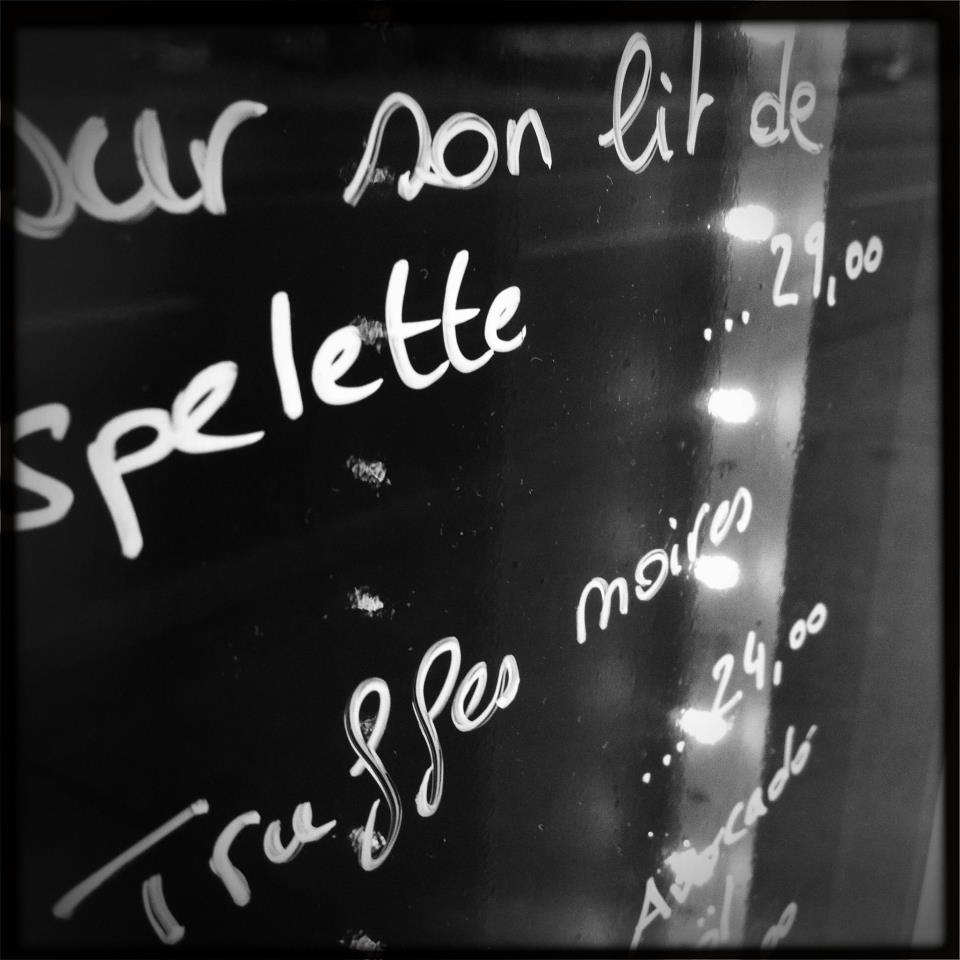 sur son lit de
... 29,00
spelette
Truffes noires
... 24,00
Avocado